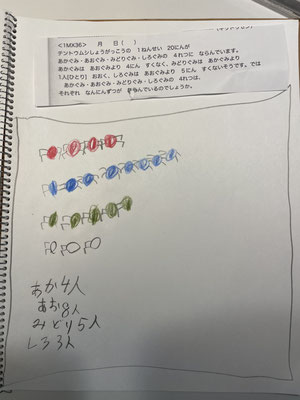 <1MX36>　　月　　日（　）
テントウムシしょうがっこうの　1ねんせい　20にんが
あかぐみ・あおぐみ・みどりぐみ・しろぐみの　4れつに　ならんでいます。
あかぐみは　あおぐみより　4にん　すくなく、みどりぐみは　あかぐみより
1人[ひとり]　おおく、しろぐみは　あおぐみより　5にん　すくないそうです。では
あかぐみ・あおぐみ・みどりぐみ・しろぐみの　4れつは、
それぞれ　なんにんずつが　んでいるのでしょうか。
あか4人
あお8人
みどり5人
しろ3人